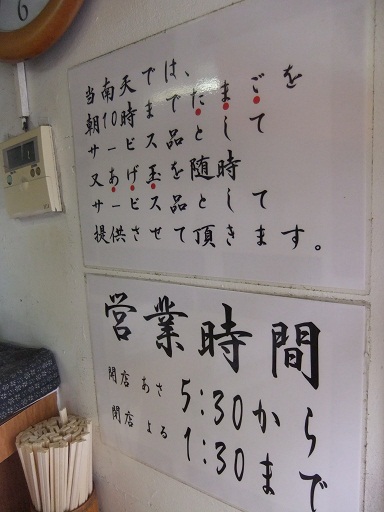 6
当南天では、
朝10時までたまごを
サービス品として
又あげ玉を随時
サービス品として
提供させて頂きます。
営業時間
開店 あさ 5:30から
閉店 よる 1:30まで